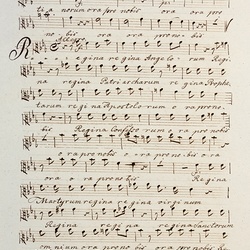 ti a nostrum ora pro nobis ora ora pro
no bis ora ora pro no bis
Allegro
Regina regina Angelo rum Regi
na regina Patriarcharum regina Prophe
tarum regina Apostolorum ora pro no
bis Regina Confesso rum ora pro nobis
ora pro nobis ora pro nobis ora
ora o ra pro nobis Regina
Martyrum regina regina virginum
Regina regina regina Sanctorum
omnium ora pro no bis ora pro nobis